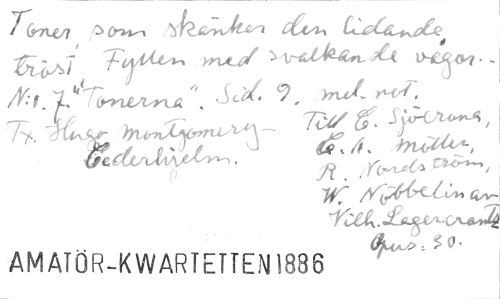 Toner, som skänker den lidande
tröst, Fyllen med svalkande vågor..
N:r. 7. "Tonerna". Sid. 9. mel. not.
Tx. Hugo Montgomery-
Cederhjelm.
Till C. Sjöcrona,
C. A. Möller,
R. Nordström,
W. Nöbbelin av
Vilh. Lagercrantz
Opus: 30.
AMATÖR-KWARTETTEN 1886